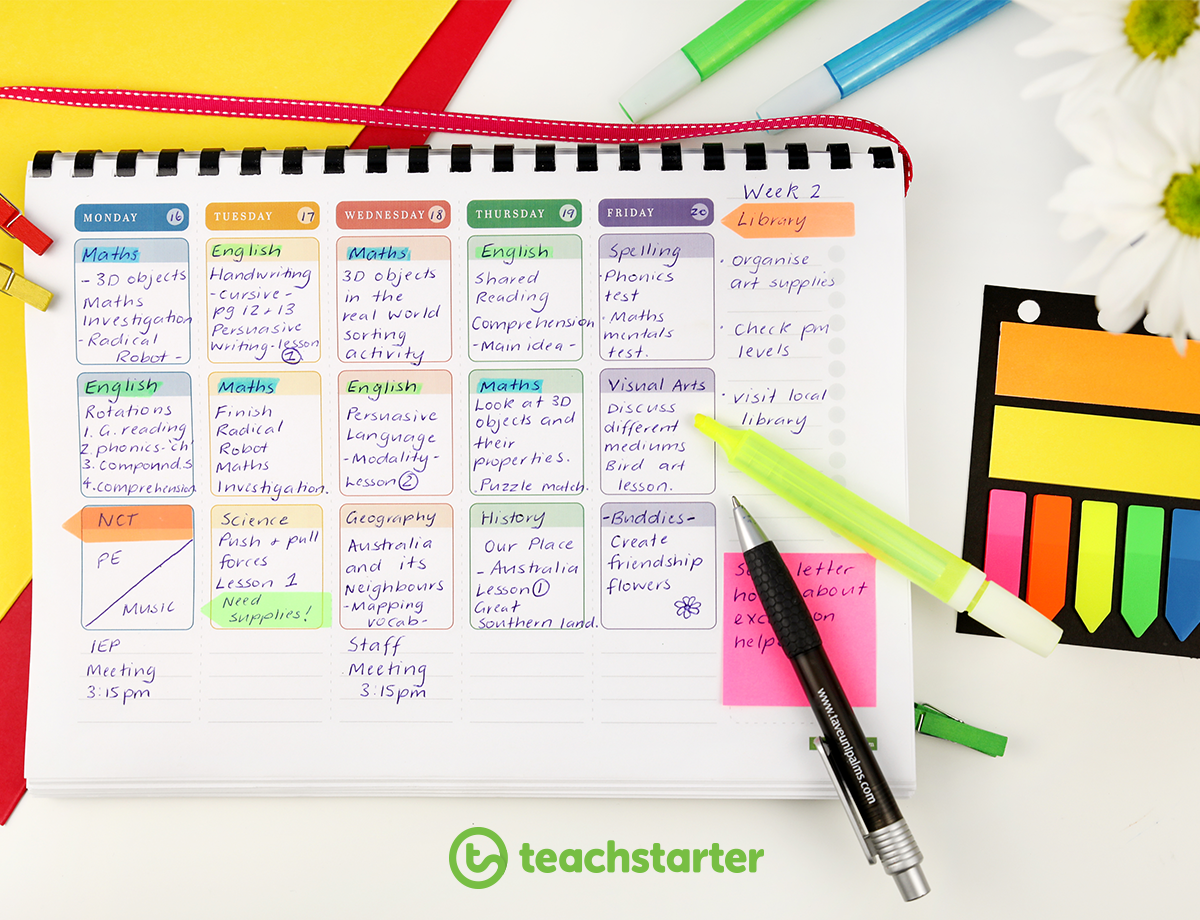 MONDAY 16
Maths
- 3D objects
Maths
Investigation
- Radical
Robot -
English
Rotations
1. G. reading
2. phonics-'ch'
3. compound.s
4. comprehension
NCT
PE
MUSIC
IEP
Meeting
3:15pm
TUESDAY 17
English
Handwriting
- cursive -
pg 12 + 13
Persuasive
Writing - lesson
1
Maths
Finish
Radical
Robot
Maths
Investigation.
Science
Push + pull
forces
Lesson 1
Need
supplies!
WEDNESDAY 18
Maths
3D objects
in the
real world
sorting
activity
English
Persuasive
Language
- Modality -
Lesson 2
Geography
Australia
and its
Neighbours
- Mapping
vocab -
Staff
Meeting
3:15pm
THURSDAY 19
English
Shared
Reading
Comprehension
- Main idea -
Maths
Look at 3D
objects and
their
properties.
Puzzle match.
History
Our Place
- Australia
Lesson 1
Great
Southern land.
FRIDAY 20
Spelling
· Phonics
test
· Maths
mentals
test.
Visual Arts
Discuss
different
mediums
Bird art
lesson.
- Buddies -
Create
friendship
flowers
Week 2
Library
· organise
art supplies
· check pm
levels
· visit local
library
letter
about
help
www.taveunipalms.com
teachstarter